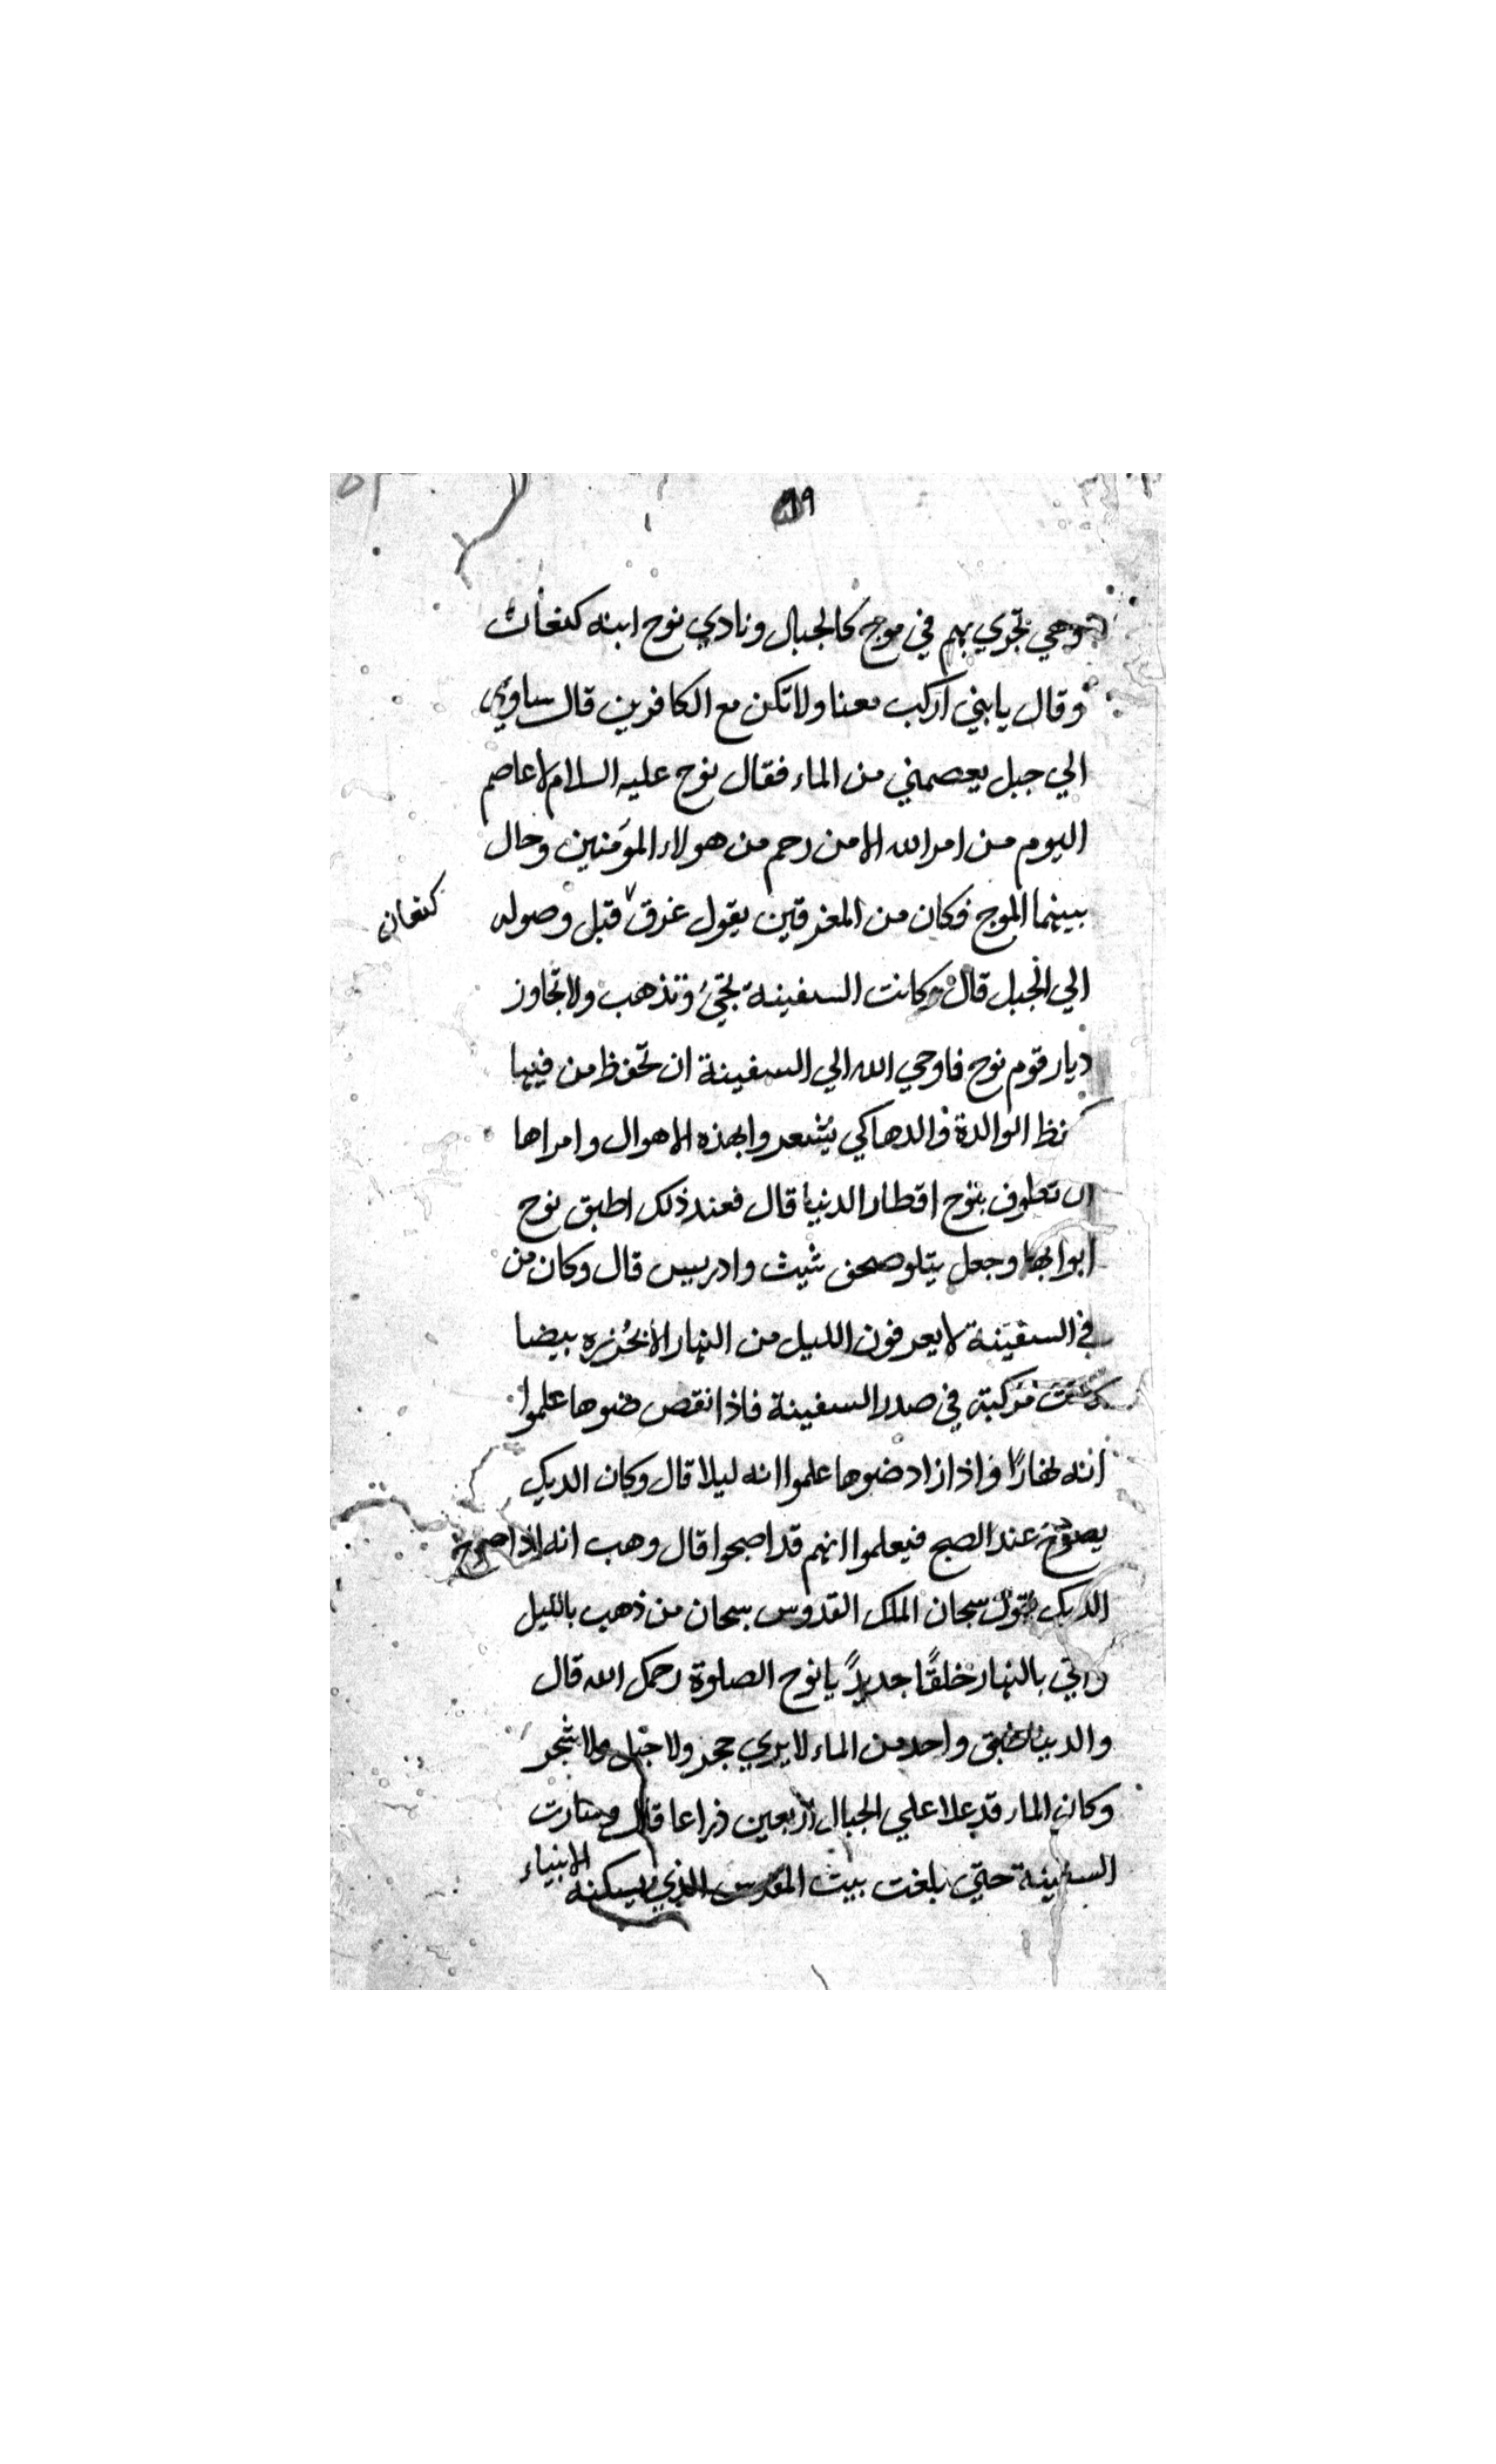 ٩٩
وهي تجري بهم في موج كالجبال ونادي نوح ابنه كنعان
وقال يابني اركب معنا ولا تكن مع الكافرين قال ساوي
الي جبل يعصمني من الماء فقال نوح عليه السلام لا عاصم
اليوم من امر الله الا من رحم من هولاء المؤمنين وحال
بينهما الموج فكان من المغرقين يقول غرق قبل وصوله
كنعان
الي الجبل قال وكانت السفينة تجئ وتذهب ولا تجاوز
ديار قوم نوح فاوحي الله الي السفينة ان تحفظ من فيها
الوالدة والدها كي يشعروا بهذه الاهوال وامراها
ان تطوف بنوح اقطار الدنيا قال فعند ذلك اطبق نوح
ابوابها وجعل يتلو صحف شيث وادريس قال وكان من
في السفينة لا يعرفون الليل من النهار الا بخرزه بيضا
كانت مركبة في صدر السفينة فاذا نقص ضوها علموا
انه نهارًا واذا زاد ضوها علموا انه ليلا قال وكان الديك
يصوخ عند الصبح فيعلموا انهم قد اصبحوا قال وهب انه اذا صوخ
الديك يقول سبحان الملك القدوس سبحان من ذهب بالليل
واتي بالنهار خلقًا جديدً يا نوح الصلوة رحمك الله قال
والدنيا واحد من الماء لا يري حجر ولا جبل ولا شجر
وكان الماء قد علا علي الجبال اربعين ذراعا قال وسارت
السفينة حتي بلغت بيت المقدس الذي يسكنه الانبياء